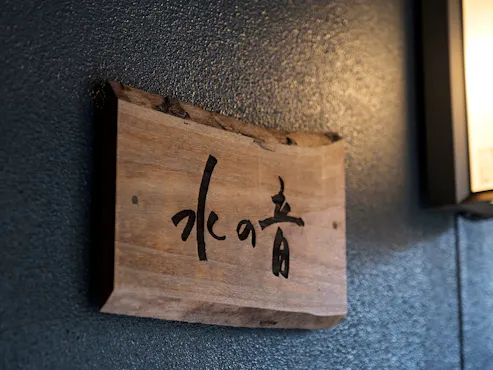 水の音